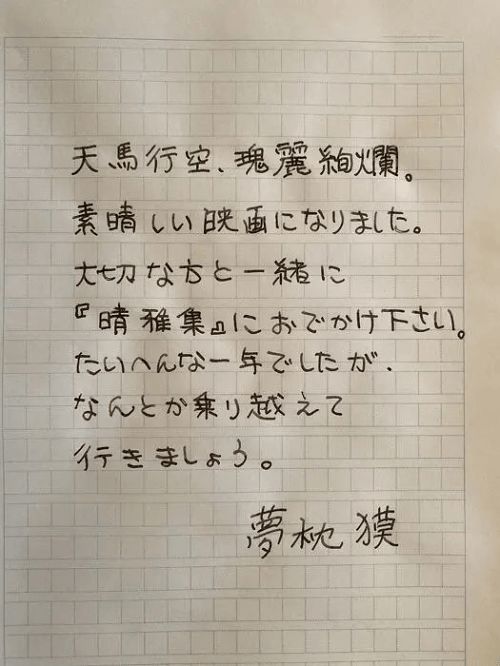 天馬行空、瑰麗絢爛。
素晴しい映画になりました。
大切な方と一緒に
『晴雅集』におでかけ下さい。
たいへんな一年でしたが、
なんとか乗り越えて
行きましょう。
夢枕獏